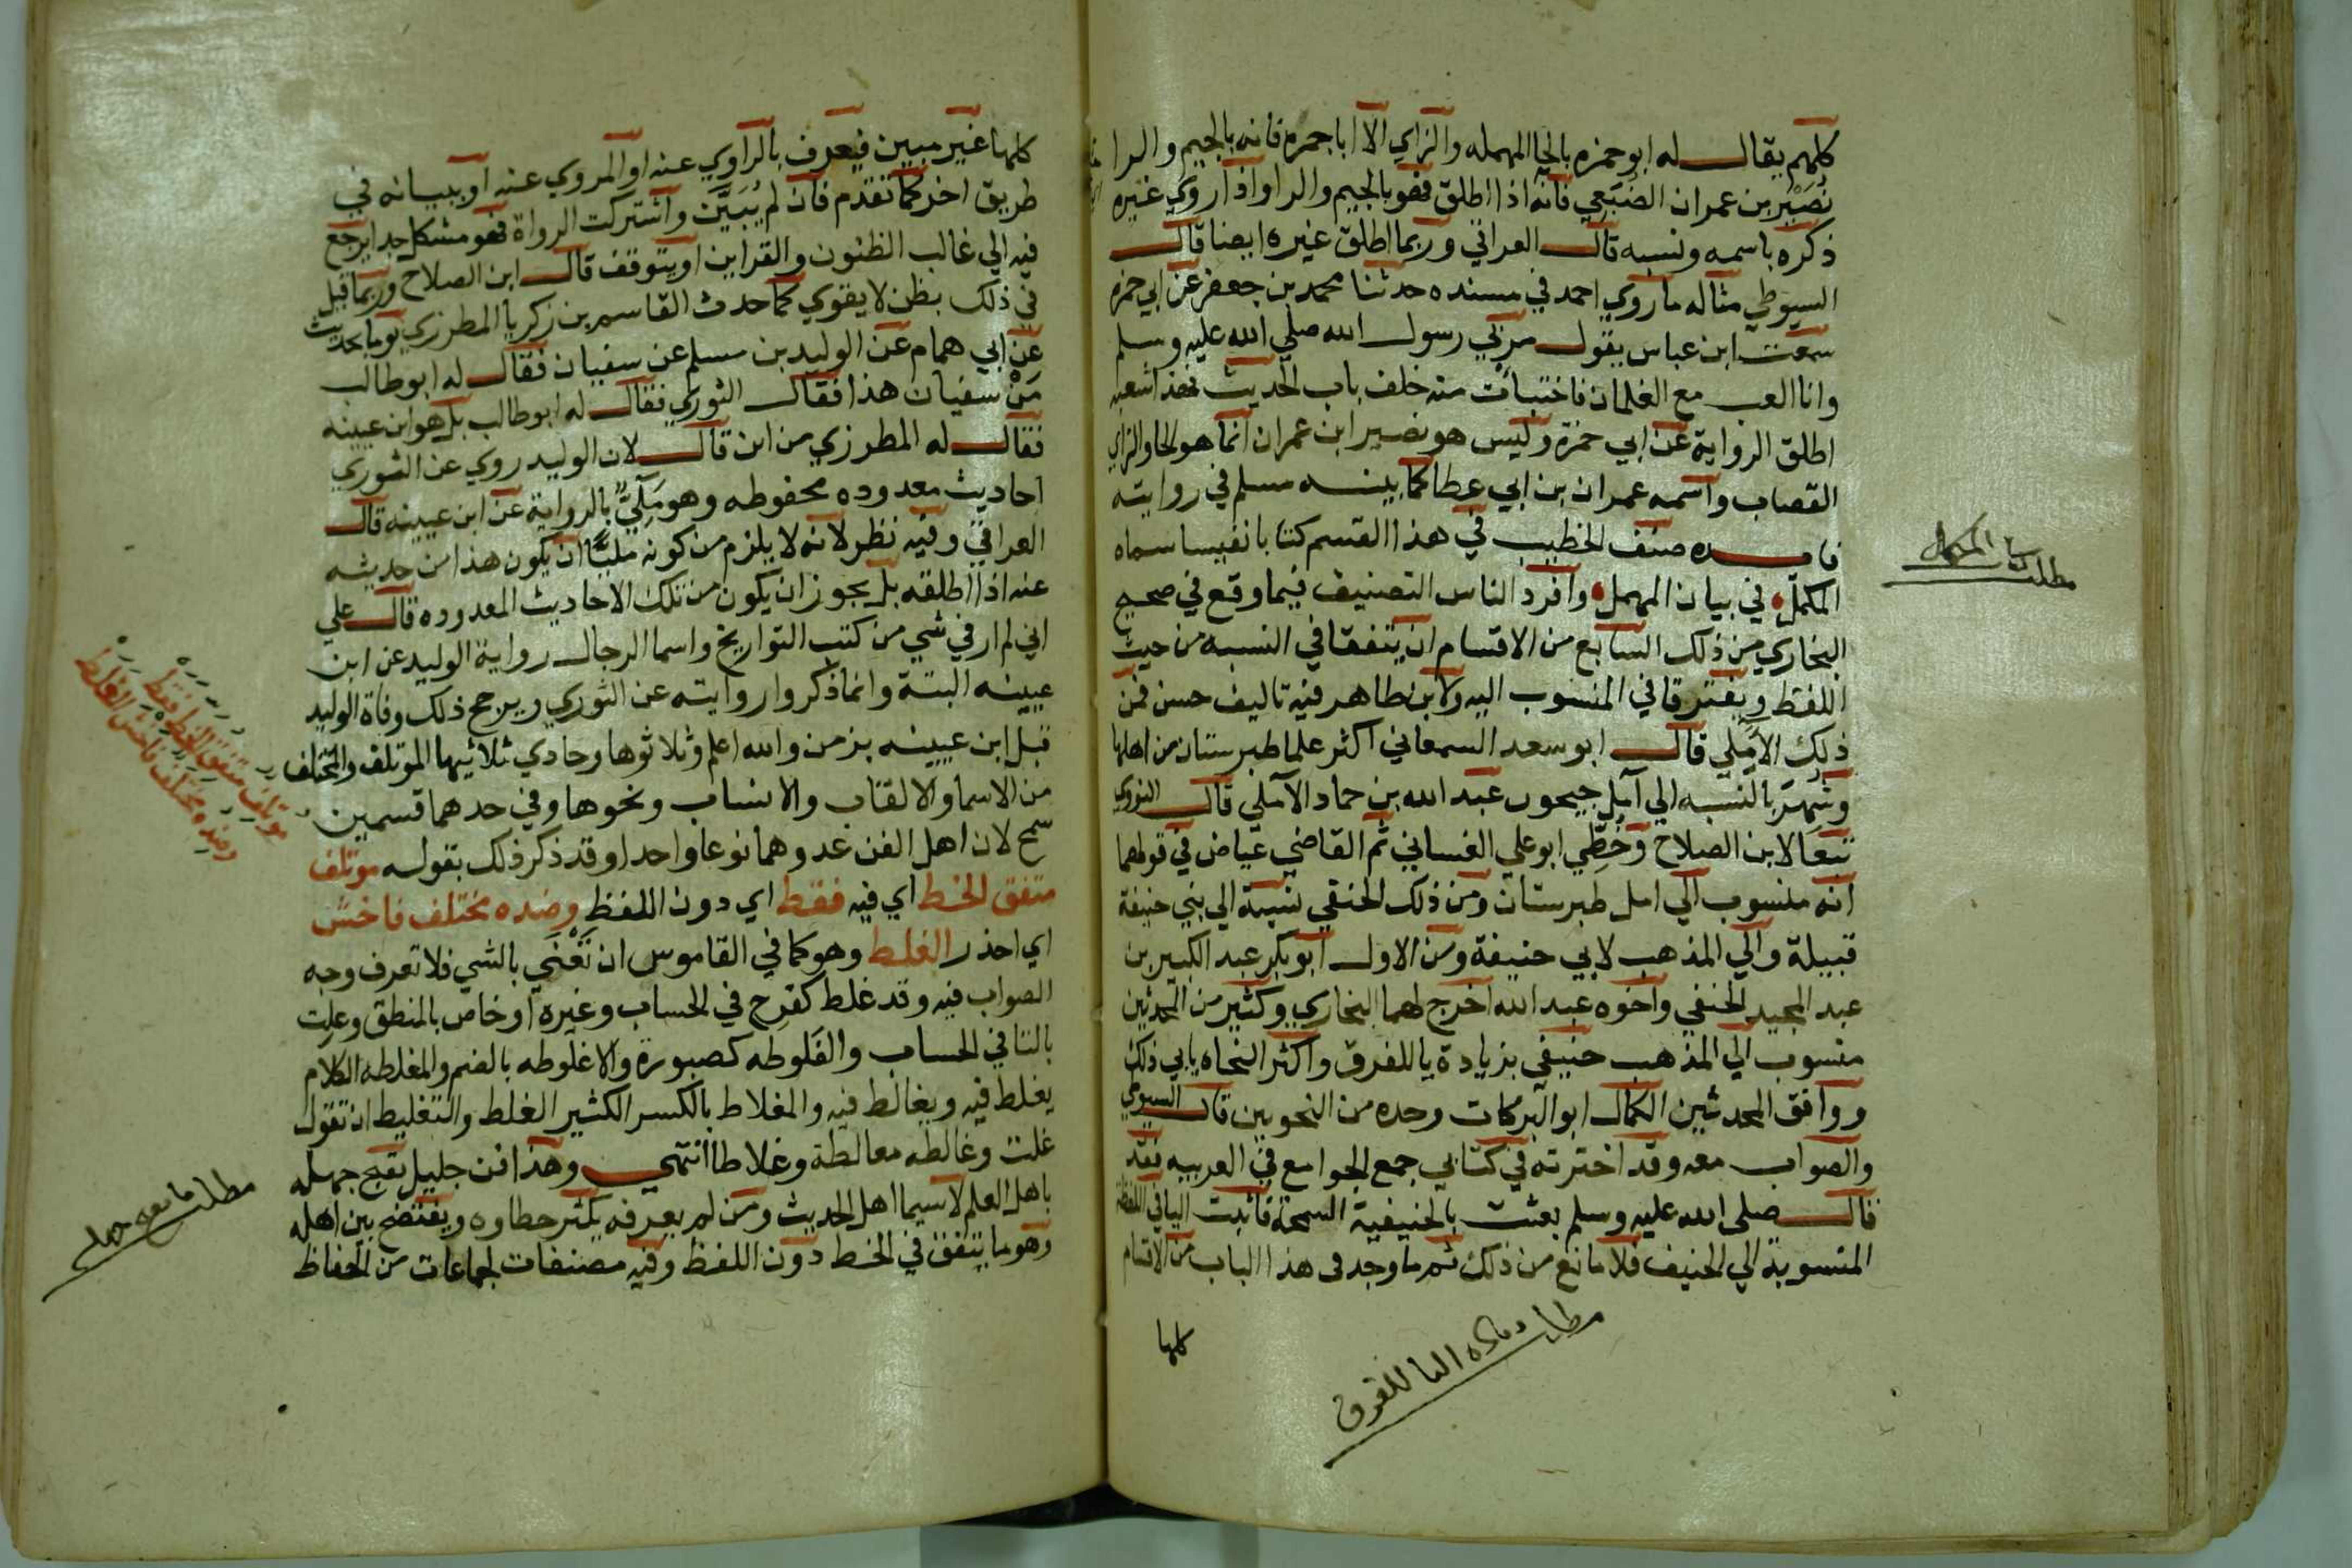 كلهم يقال له ابو حمزه بالحا المهمله والزاي الا ابا جمره فانه بالجيم والرا
نُصَيْر بن عمران الضُبَعي فانه اذا اطلق فهو بالجيم والرا واذا روي غيره
ذكره باسمه ونسبه قال العراقي وربما اطلق غيره ايضا قال
السيوطي مثاله ما روي احمد في مسنده حدثنا محمد بن جعفر عن ابي حمزه
سمعت ابن عباس يقول مر بي رسول الله صلي الله عليه وسلم
وانا العب مع الغلمان فاختبأت منه خلف باب الحديث فهذا شعبه
اطلق الرواية عن ابي حمزة وليس هو نصير ابن عمران انما هو بالحا والزاي
القصاب واسمه عمران بن ابي عطا كما بينه مسلم في روايته
فايده صنف الخطيب في هذا القسم كتابا نفيسا سماه
المكمل في بيان المهمل وافرد الناس التصنيف فيما وقع في صحيح
البخاري من ذلك السابع من الاقسام ان يتفقا في النسبه من حيث
اللفظ ويفترقا في المنسوب اليه ولابن طاهر فيه تاليف حسن فمن
ذلك الآمُلي قال ابو سعد السمعاني اكثر علما طبرستان من اهلها
وشُهِرَ بالنسبه الي آمل جيحون عبد الله بن حماد الآملي قال النووي
تبعا لابن الصلاح وخُطِّي ابو علي الغساني ثم القاضي عياض في قولهما
انه منسوب الي امل طبرستان ومن ذلك الحنفي نسبة الي بني حنيفة
قبيلة والي المذهب لابي حنيفة ومن الاول ابو بكر عبد الكبير بن
عبد المجيد الحنفي واخوه عبد الله اخرج لهما البخاري وكثير من المحدثين
منسوب الي المذهب حنيفي بزيادة يا للفرق واكثر النحاه يابي ذلك
ووافق المحدثين الكمال ابو البركات وحده من النحويين قال السيوطي
والصواب معه وقد اخترته في كتابي جمع الجوامع في العربيه فقد
قال صلى الله عليه وسلم بعثت بالحنيفية السمحة فاثبت اليا في اللفظة
المنسوبة الي الحنيف فلا مانع من ذلك ثم ما وجد في هذا الباب من الاقسام
كلها
مطلب المكمل
مطلب زيادة اليا للفرق
كلها غير مبين فيعرف بالراوي عنه او المروي عنه او ببيانه في
طريق اخر كما تقدم فان لم يُبَيَّن واشتركت الرواة فهو مشكل جدا يرجع
فيه الي غالب الظنون والقراين او يتوقف قال ابن الصلاح وربما قيل
في ذلك بظن لا يقوي كما حدث القاسم بن زكريا المطرزي يوما بحديث
عن ابي همام عن الوليد بن مسلم عن سفيان فقال له ابو طالب
مَنْ سفيان هذا فقال الثوري فقال له ابو طالب بل هو ابن عيينه
فقال له المطرزي من اين قال لان الوليد روي عن الثوري
احاديث معدوده محفوظه وهو مَلِيٌّ بالرواية عن ابن عيينه قال
العراقي وفيه نظر لانه لا يلزم من كونه مليًّا ان يكون هذا من حديثه
عنه اذا اطلقه بل يجوز ان يكون من تلك الاحاديث المعدوده قال علي
اني لم ار في شي من كتب التواريخ واسما الرجال رواية الوليد عن ابن
عيينه البتة وانما ذكروا روايته عن الثوري ويرجح ذلك وفاة الوليد
قبل ابن عيينه بزمن والله اعلم وثلاثوها وحادي ثلاثيها الموتلف والمختلف
من الاسما والالقاب والانساب ونحوها وفي حدهما قسمين
سمح لان اهل الفن عدوهما نوعا واحدا وقد ذكر ذلك بقوله موتلف
متفق الخط اي فيه فقط اي دون اللفظ وضده مختلف فاخش
اي احذر الغلط وهو كما في القاموس ان تَعْنَي بالشي فلا تعرف وجه
الصواب فيه وقد غلط كفرح في الحساب وغيره او خاص بالمنطق وغلِت
بالتا في الحساب والغلوطه كصبورة والاغلوطه بالضم والمغلطه الكلام
يغلط فيه ويغالط فيه والمغلاط بالكسر الكثير الغلط والتغليط ان تقول
غلت وغالطه مغالطة وغلاطا انتهي وهذا فن جليل يقبح جهله
باهل العلم لا سيما اهل الحديث ومن لم يعرفه يكثر خطاوه ويفتضح بين اهله
وهو ما يتفق في الخط دون اللفظ وفيه مصنفات لجماعات من الحفاظ
موتلف متفق الخط فقط
وضده مختلف فاخش الغلط